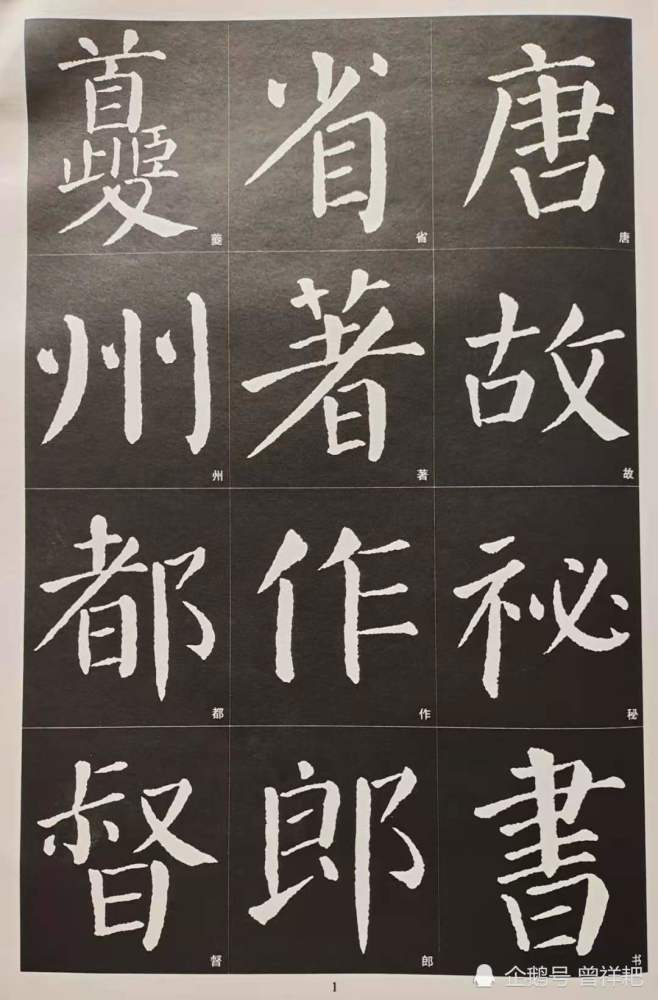 唐故祕書
唐故秘书
省著作郎
省著作郎
夔州都督
夔州都督
1
企鹅号 曾祥耙